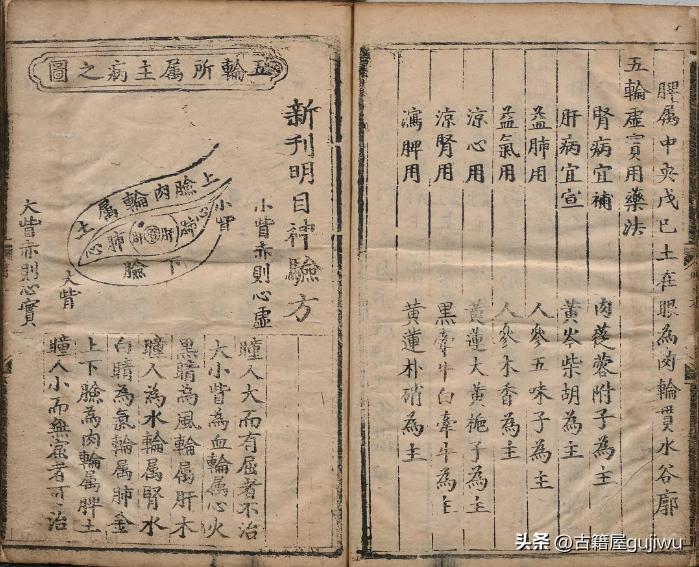 脾属中央戊巳土在眼為肉輪貫水谷廓
五輪虚實用藥法
腎病宜補 肉蓯蓉附子為主
肝病宜宣 黄芩柴胡為主
益肺用 人參五味子為主
益氣用 人參木香為主
涼心用 黄蓮大黄梔子為主
涼腎用 黑牽牛白牽牛為主
瀉脾用 黄蓮朴硝為主
五輪所属主病之圖
新刊明目神驗方
小眥赤則心虚
上臉肉輪属土
小眥
心肺肝肝肺心
下臉
大眥
大眥赤則心實
瞳人大而有屈者不治
大小眥為血輪属心火
黑睛為風輪属肝木
瞳人為水輪属腎水
白睛為氣輪属肺金
上下臉為肉輪属脾土
瞳人小而無者可治
头条 @古籍屋gujiwu